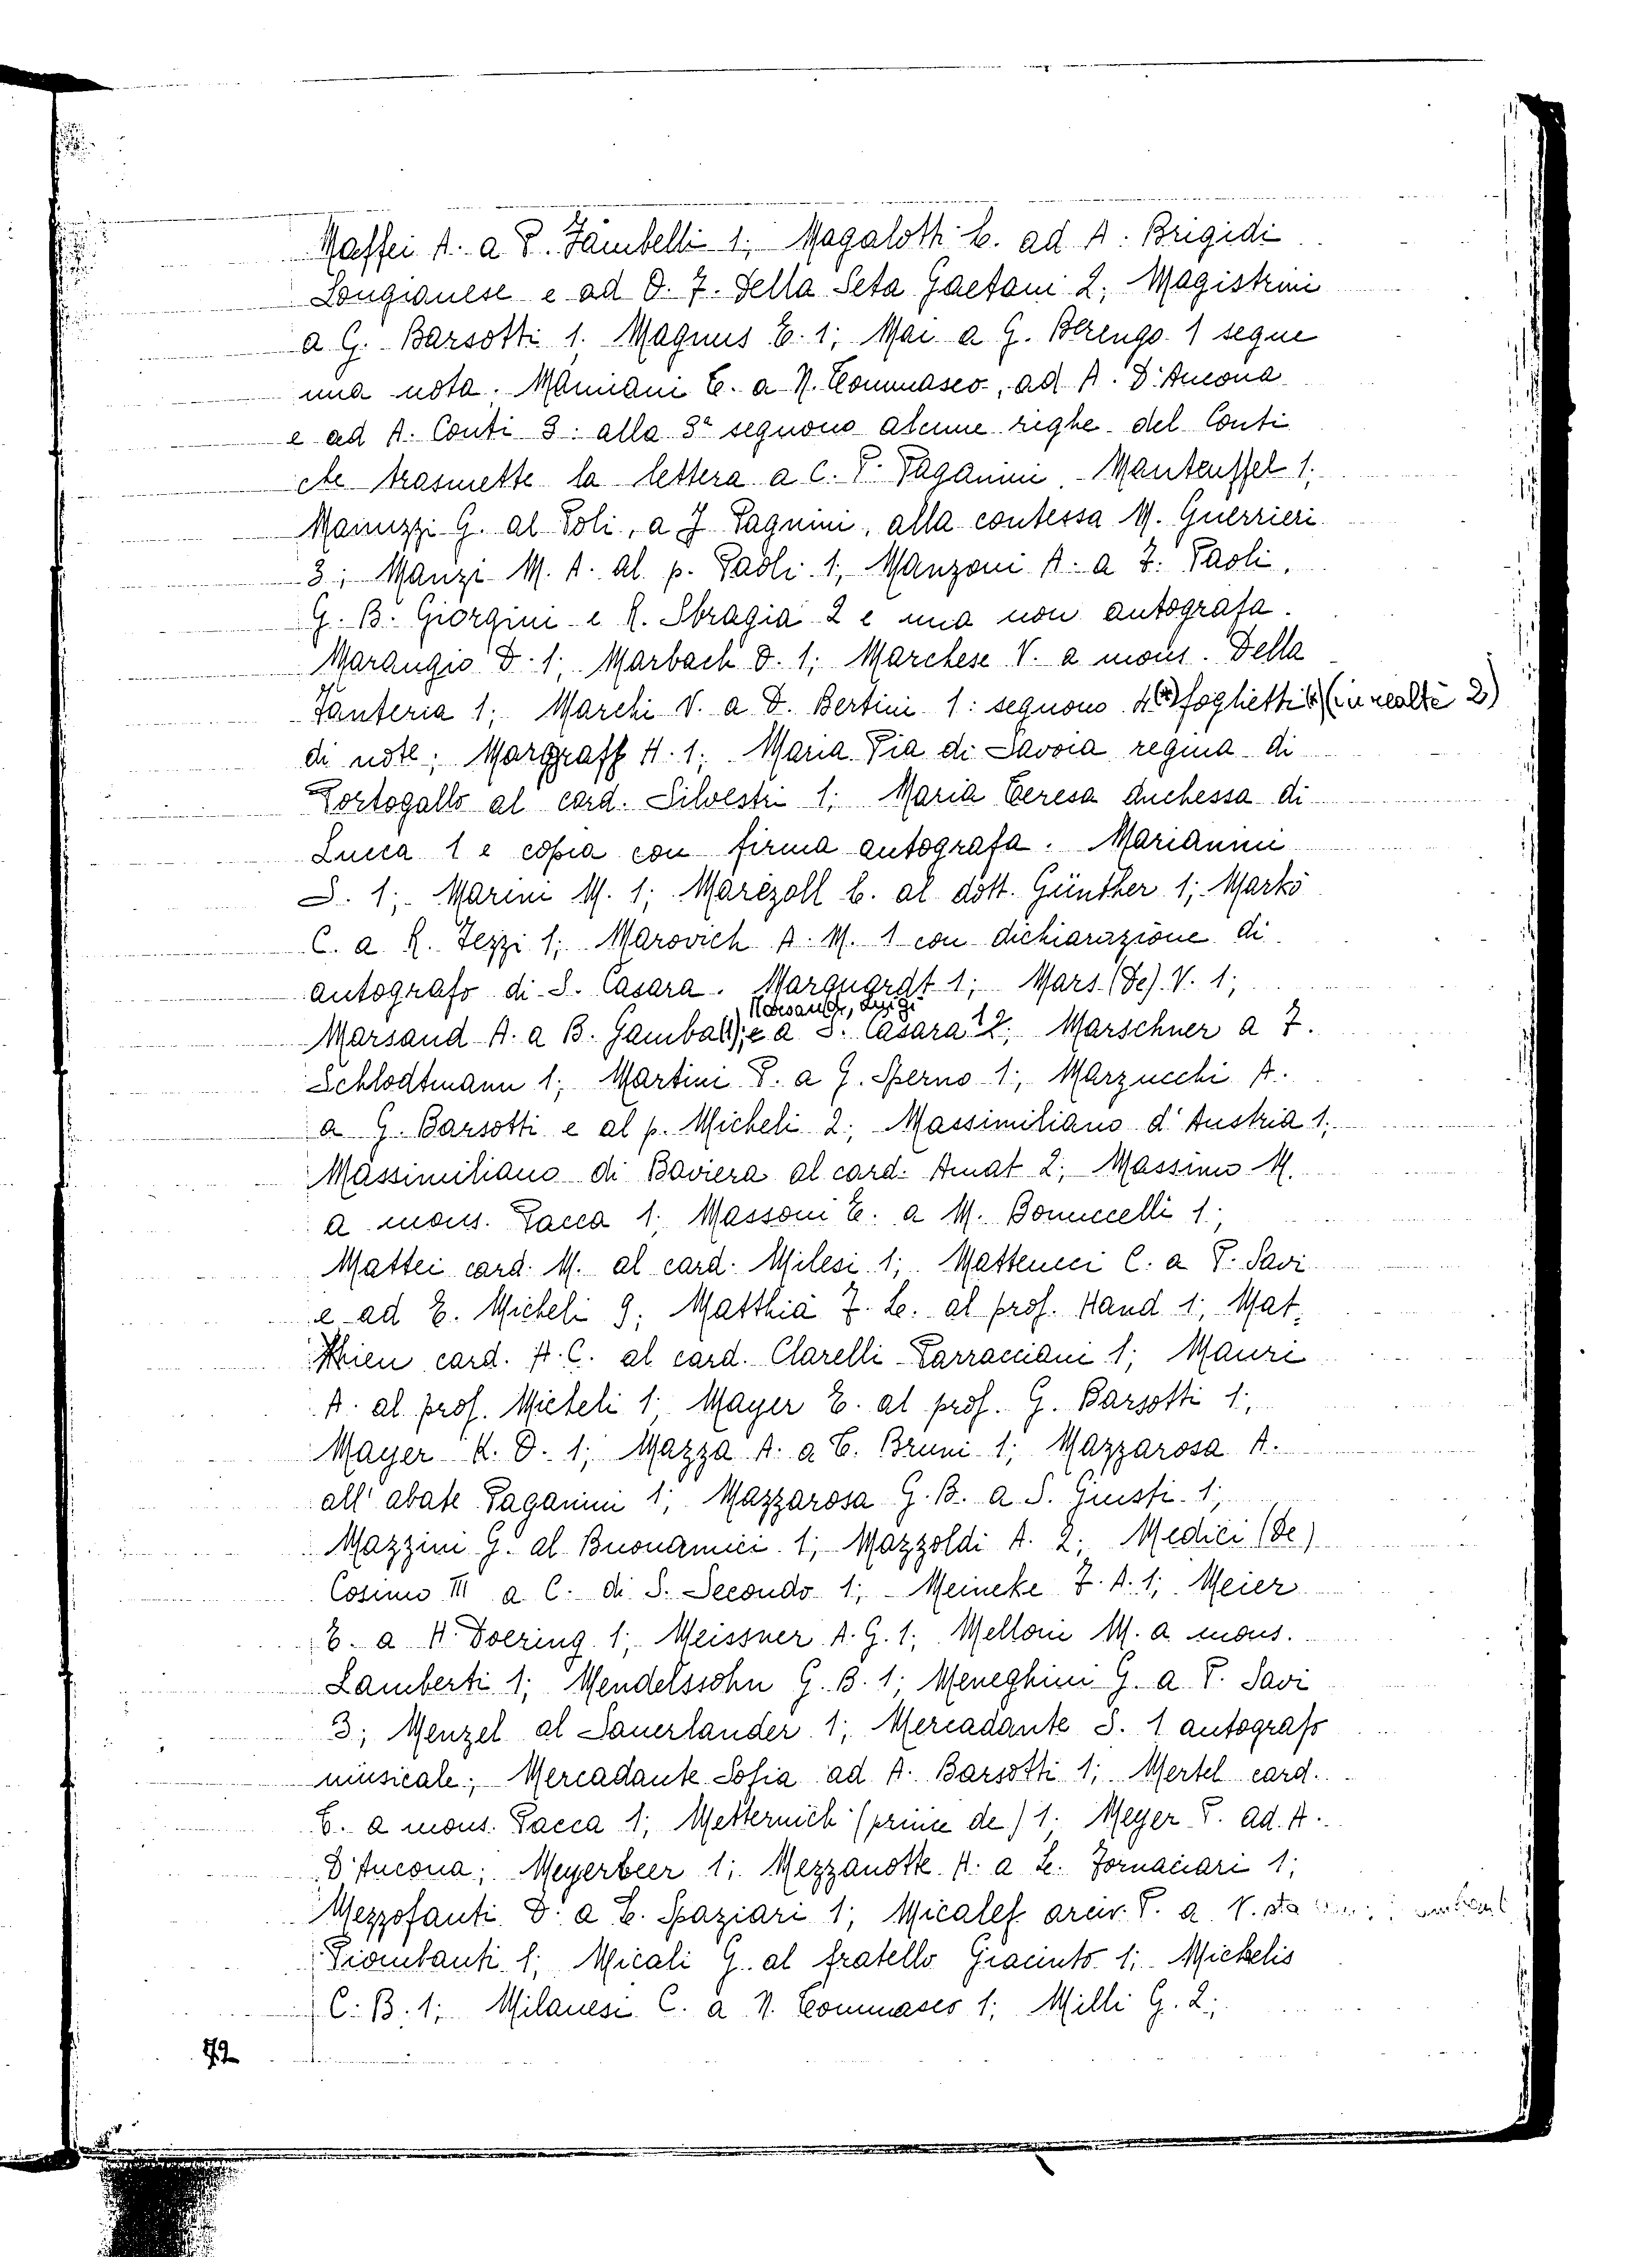 Maffei A. a P. Zambelli 1; Magalotti L. ad A. Brigidi
Longianese e ad O. F. Della Seta Gaetani 2; Magistrini
a G. Barsotti 1. Magnus E. 1; Mai a G. Berengo 1 segue
una nota. Mamiani T. a N. Tommaseo, ad A. D'Ancona
e ad A. Conti 3: alla 3ª seguono alcune righe del Conti
che trasmette la lettera a C. P. Paganini. Manteuffel 1;
Manuzzi G. al Poli, a J Pagnini, alla contessa M. Guerrieri
3; Manzi M. A. al p. Paoli 1; Manzoni A. a F. Paoli,
G. B. Giorgini e R. Sbragia 2 e una non autografa.
Marangio D. 1; Marbach O. 1; Marchese V. a mons. Della
Fanteria 1; Marchi V. a D. Bertini 1: seguono 4 (*) foglietti (*) (in realtà 2)
di note; Margraff H. 1; Maria Pia di Savoia regina di
Portogallo al card. Silvestri 1; Maria Teresa duchessa di
Lucca 1 e copia con firma autografa. Marianini
S. 1; Marini M. 1; Marezoll L. al dott. Günther 1; Markò
C. a R. Tezzi 1; Marovich A. M. 1 con dichiarazione di
autografo di S. Casara. Marquardt 1; Mars (De) V. 1;
Marsand, Luigi
Marsand A. a B. Gamba (1); e a S. Casara 1 2; Marschner a F.
Schlodtmann 1; Martini P. a G. Sperno 1; Marzucchi A.
a G. Barsotti e al p. Micheli 2; Massimiliano d'Austria 1;
Massimiliano di Baviera al card. Amat 2; Massimo M.
a mons. Pacca 1; Massoni E. a M. Bonuccelli 1;
Mattei card. M. al card. Milesi 1; Matteucci C. a P. Savi
e ad E. Micheli 9; Matthia F. L. al prof. Hand 1; Mat-
thien card. A. C. al card. Clarelli-Parracciani 1; Mauri
A. al prof. Micheli 1; Mayer E. al prof. G. Barsotti 1;
Mayer K. O. 1; Mazza A. a T. Bruni 1; Mazzarosa A.
all'abate Paganini 1; Mazzarosa G. B. a S. Giusti 1;
Mazzini G. al Buonamici 1; Mazzoldi A. 2; Medici (De)
Cosimo III a C. di S. Secondo 1; Meineke F. A. 1; Meier
E. a H. Doering 1; Meissner A. G. 1; Melloni M. a mons.
Lamberti 1; Mendelssohn G. B. 1; Meneghini G. a P. Savi
3; Menzel al Sauerlander 1; Mercadante S. 1 autografo
musicale; Mercadante Sofia ad A. Barsotti 1; Mertel card.
T. a mons. Pacca 1; Metternich (prince de) 1; Meyer P. ad A.
D'Ancona; Meyerbeer 1; Mezzanotte A. a L. Fornaciari 1;
Mezzofanti D. a E. Spaziari 1; Micalef arciv. P. a V.
Piombanti 1; Micali G. al fratello Giacinto 1; Michelis
C. B. 1; Milanesi C. a N. Tommaseo 1; Milli G. 2;
72